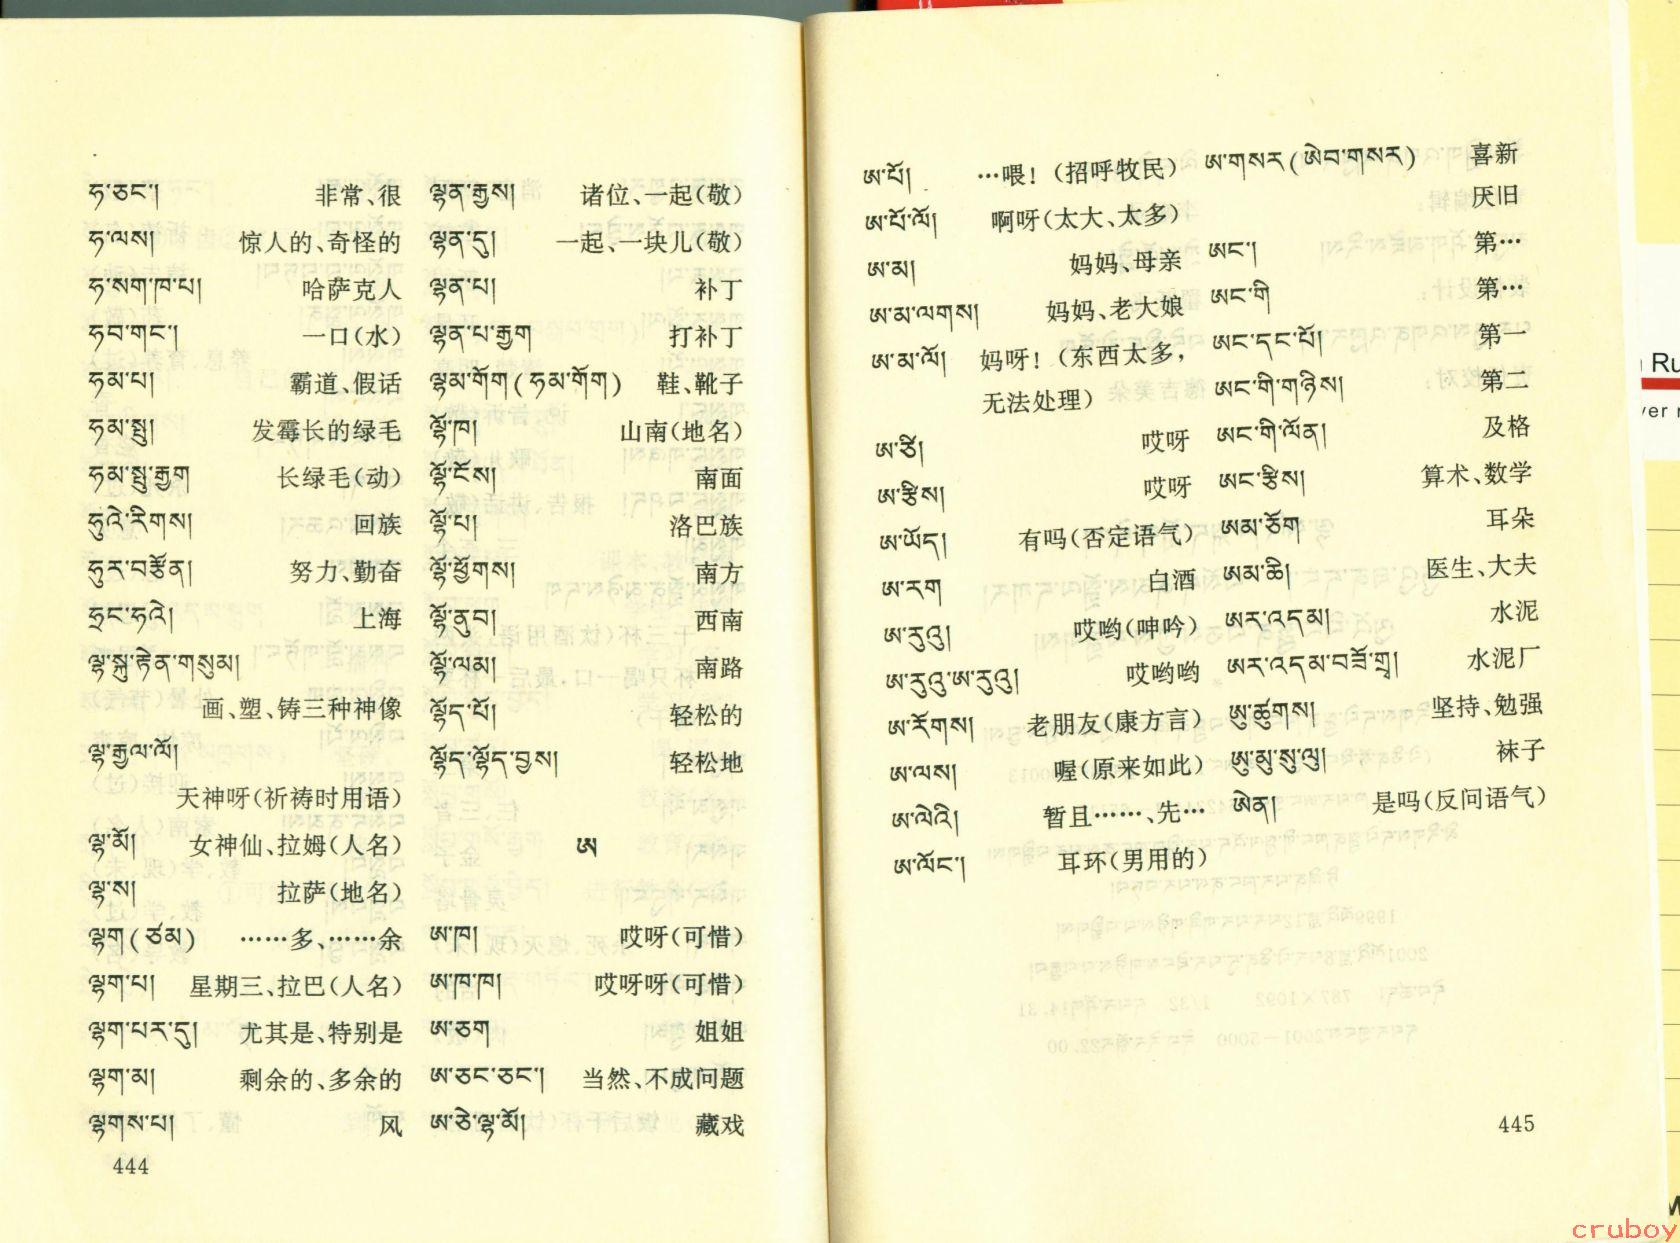 ཧ་ཅང་། 非常、很
ཧ་ལས། 惊人的、奇怪的
ཧ་སག་ཁ་པ། 哈萨克人
ཧབ་གང་། 一口(水)
ཧམ་པ། 霸道、假话
ཧམ་སྤུ། 发霉长的绿毛
ཧམ་སྤུ་རྒྱག 长绿毛(动)
ཧུའེ་རིགས། 回族
ཧུར་བརྩོན། 努力、勤奋
ཧྲང་ཧའེ། 上海
ལྷ་སྐུ་རྟེན་གསུམ།
画、塑、铸三种神像
ལྷ་རྒྱལ་ལོ།
天神呀(祈祷时用语)
ལྷ་མོ། 女神仙、拉姆(人名)
ལྷ་ས། 拉萨(地名)
ལྷག(ཙམ) ……多、……余
ལྷག་པ། 星期三、拉巴(人名)
ལྷག་པར་དུ། 尤其是、特别是
ལྷག་མ། 剩余的、多余的
ལྷགས་པ། 风
444
ལྷན་རྒྱས། 诸位、一起(敬)
ལྷན་དུ། 一起、一块儿(敬)
ལྷན་པ། 补丁
ལྷན་པ་རྒྱག 打补丁
ལྷམ་གོག(ཧམ་གོག) 鞋、靴子
ལྷོ་ཁ། 山南(地名)
ལྷོ་ངོས། 南面
ལྷོ་པ། 洛巴族
ལྷོ་ཕྱོགས། 南方
ལྷོ་ནུབ། 西南
ལྷོ་ལམ། 南路
ལྷོད་པོ། 轻松的
ལྷོད་ལྷོད་བྱས། 轻松地
ཨ
ཨ་ཁ། 哎呀(可惜)
ཨ་ཁ་ཁ། 哎呀呀(可惜)
ཨ་ཅག 姐姐
ཨ་ཅང་ཅང་། 当然、不成问题
ཨ་ཅེ་ལྷ་མོ། 藏戏
ཨ་པོ། …喂!(招呼牧民)
ཨ་པོ་ལོ། 啊呀(太大、太多)
ཨ་མ། 妈妈、母亲
ཨ་མ་ལགས། 妈妈、老大娘
ཨ་མ་ལོ། 妈呀!(东西太多,
无法处理)
ཨ་ཙི། 哎呀
ཨ་རྩིས། 哎呀
ཨ་ཡོད། 有吗(否定语气)
ཨ་རག 白酒
ཨ་རུའུ། 哎哟(呻吟)
ཨ་རུའུ་ཨ་རུའུ། 哎哟哟
ཨ་རོགས། 老朋友(康方言)
ཨ་ལས། 喔(原来如此)
ཨ་ལེའི། 暂且……、先…
ཨ་ལོང་། 耳环(男用的)
ཨ་གསར(ཨེབ་གསར) 喜新
厌旧
ཨང་། 第…
ཨང་གི 第…
ཨང་དང་པོ། 第一
ཨང་གི་གཉིས། 第二
ཨང་གི་ལོན། 及格
ཨང་རྩིས། 算术、数学
ཨམ་ཅོག 耳朵
ཨམ་ཆི། 医生、大夫
ཨར་འདམ། 水泥
ཨར་འདམ་བཟོ་གྲྭ། 水泥厂
ཨུ་ཚུགས། 坚持、勉强
ཨུ་མུ་སུ་ལུ། 袜子
ཨེན། 是吗(反问语气)
445
cruboy